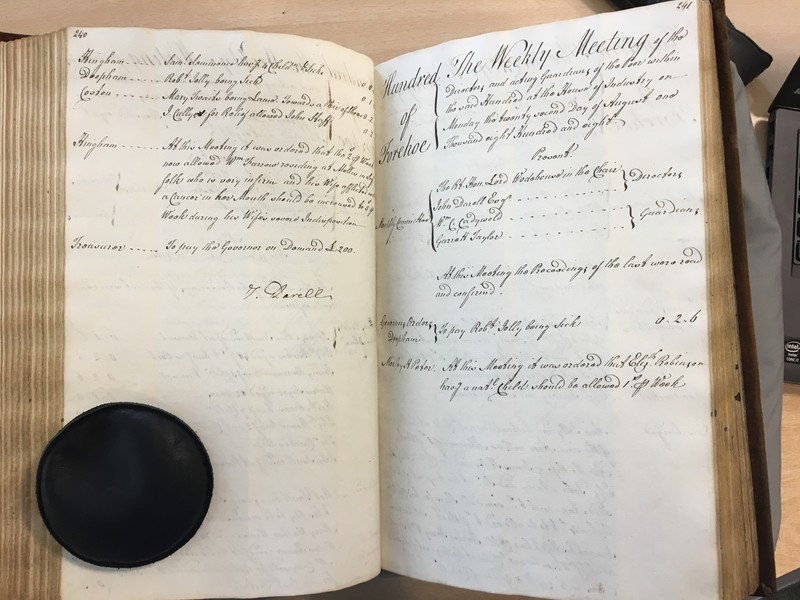 240
Hingham ---- Sam.l Semmence hav.g 4 Child.n & Sick
Deopham ---- Rob.t Jolly being Sick
Coston ---- Mary Twaits being Lame Towards a Pair of Shoes
J. Cullyer for Relief allowed John Huff
Hingham ---- At this Meeting it was ordered that the 2s. ℔ Week
now allowed Wm. Farrow residing at
folk who is very infirm and his Wife afflicted
a Cancer in her Mouth should be increased to
Week during his Wifes severe Indisposition
Treasurer ---- To pay the Governor on Demand £200.
J. Darell
241
Hundred
of
Forehoe
The Weekly Meeting of the
Directors and acting Guardians of the Poor within
the said Hundred at the House of Industry on
Monday the twenty second Day of August one
Thousand eight Hundred and eight
Present.
Weekly Committee
The Rt. Hon. Lord Wodehouse in the Chair
John Darell Esqr.
Directors
Wm. C. Cadywold
Garrett Taylor
Guardians
At this Meeting the Proceedings of the last were read
and confirmed.
Governors Orders
Deopham
To pay Rob.t Jolly being Sick 0-2-6
Morley St. Peter. At this Meeting it was ordered that Eliz.th Robinson
hav.g a nat.l Child should be allowed 1s. ℔ Week
intel